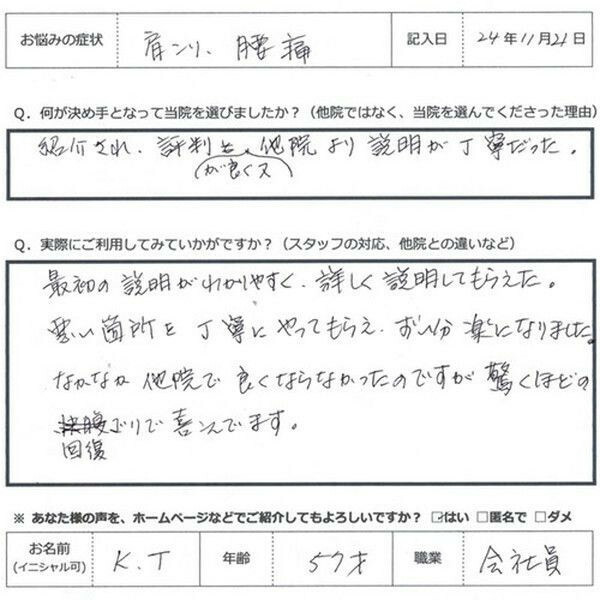 お悩みの症状 肩こり、腰痛 記入日 24年11月21日
Q. 何が決め手となって当院を選びましたか？（他院ではなく、当院を選んでくださった理由）
紹介され、評判も、他院より説明が丁寧だった。
が良くて
Q. 実際にご利用してみていかがですか？（スタッフの対応、他院との違いなど）
最初の説明がわかりやすく、詳しく説明してもらえた。
悪い箇所を丁寧にやってもらえ、ずい分楽になりました。
なかなか他院で良くならなかったのですが驚くほどの
ぶりで喜んでます。
回復
※ あなた様の声を、ホームページなどでご紹介してもよろしいですか？ ☑はい □匿名で □ダメ
お名前 K.T 年齢 57才 職業 会社員
(イニシャル可)